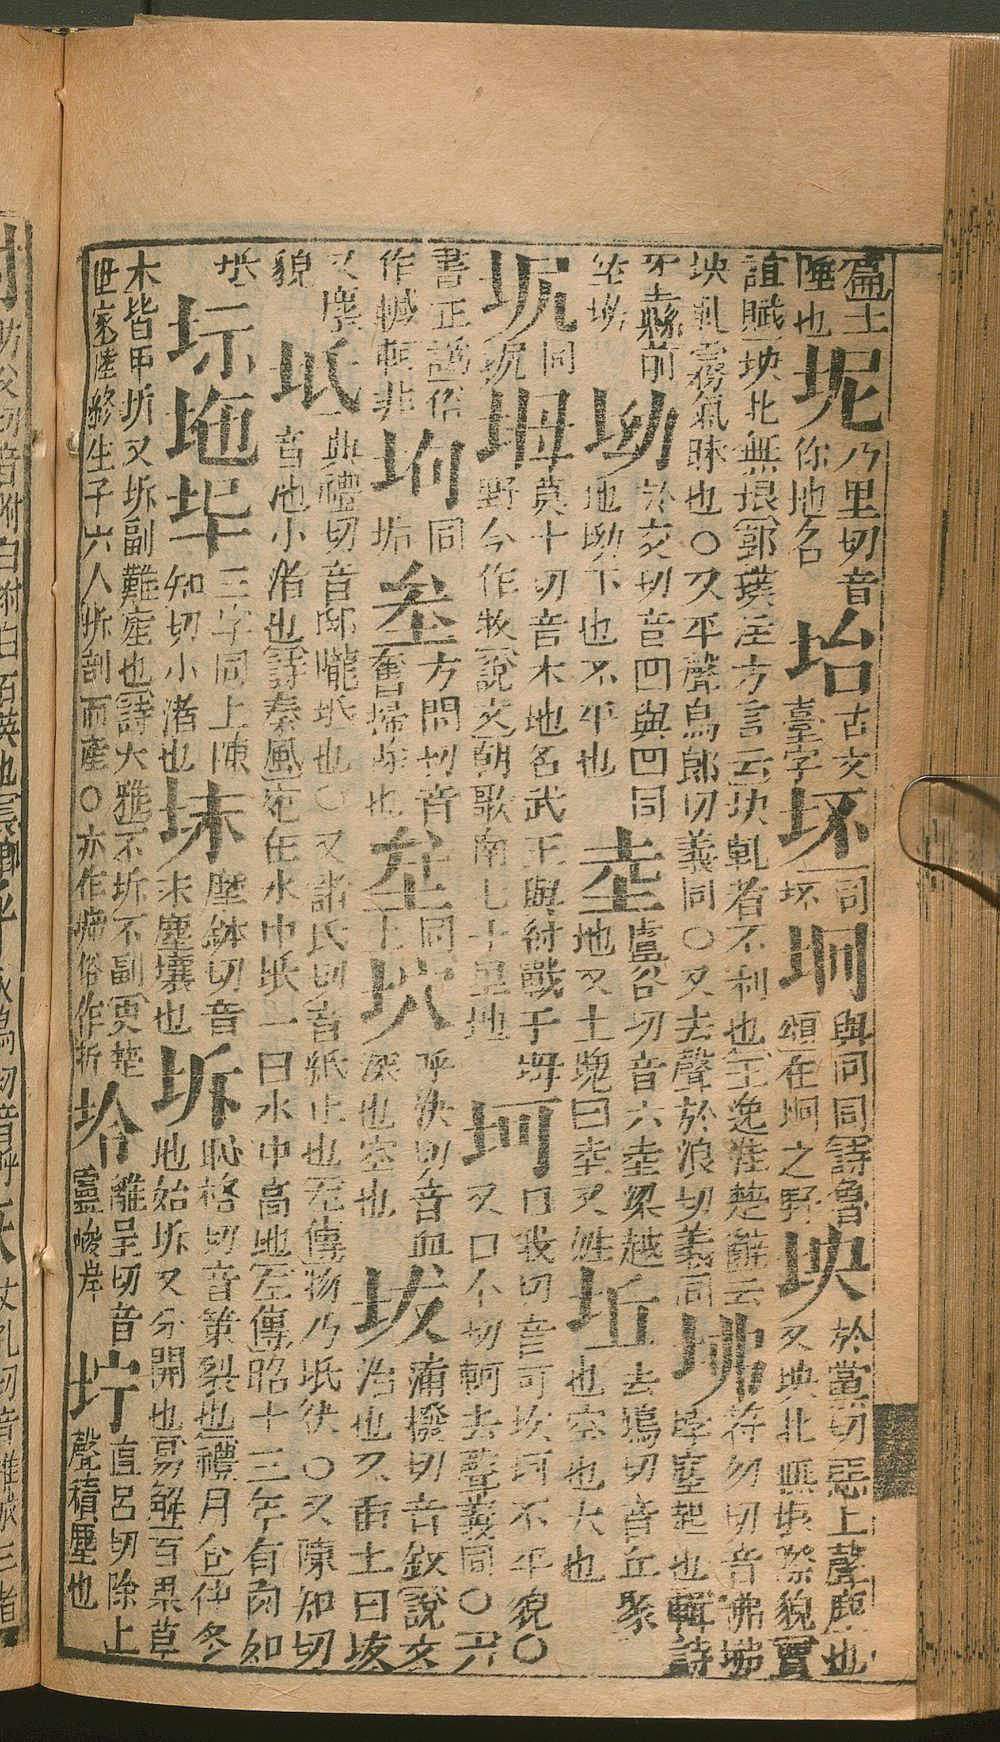 篇土陲也 坭 乃里切音你地名 坮 古文臺字 坯 同坏 坰 與冋同詩魯頌在坰之野 坱 於黨切怏上聲塵也又坱圠無垠際貌賈
誼賦坱圠無垠郭璞注方言云坱軋者不利也王逸注楚辭云坱軋霧氣昧也○又平聲烏郎切義同○又去聲於浪切義同 坲 符勿切音佛坲坲塵起也韓詩
縣前 坳 於交切音凹與凹同地坳下也不平也 坴 盧谷切音六坴梁越地又土塊曰坴又姓 坵 去鳩切音丘聚也空也大也
坈 同坑 坶 莫卜切音木地名武王與紂戰于坶野今作牧說文朝歌南七十里地 坷 口我切音可坎坷不平貌○又口个切軻去聲義同○
書正譌俗作轗軻非 坸 同垢 方問切音奮埽除也 同上 坹 呼決切音血深也空也 坺 蒲撥切音說文治也又臿土曰坺
又塵貌 坻 典禮切音邸隴坻也○又諸氏切音紙止也左傳物乃坻伏○又陳知切音池小渚也詩秦風宛在水中坻一曰水中高地左傳昭十三年有肉如
坻 三字同上陳知切小渚也 鉢切音末塵壤也 坼 恥格切音策裂也禮月令仲冬地始坼又分開也易解百果草
木皆甲坼又坼副難產也詩大雅不坼不副史楚世家陸終生子六人坼剖而產○亦作俗作拆 坽 離呈切音靈峻岸 坾 直呂切除上聲積塵也